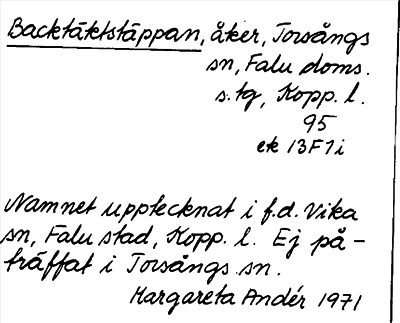 Backtäktstäppan, åker, Torsångs
sn, Falu doms.
s.tg, Kopp. l.
95
ek 13F1i
Namnet upptecknat i f.d. Vika
sn, Falu stad, Kopp. l. Ej på-
träffat i Torsångs sn.
Margareta Andér 1971